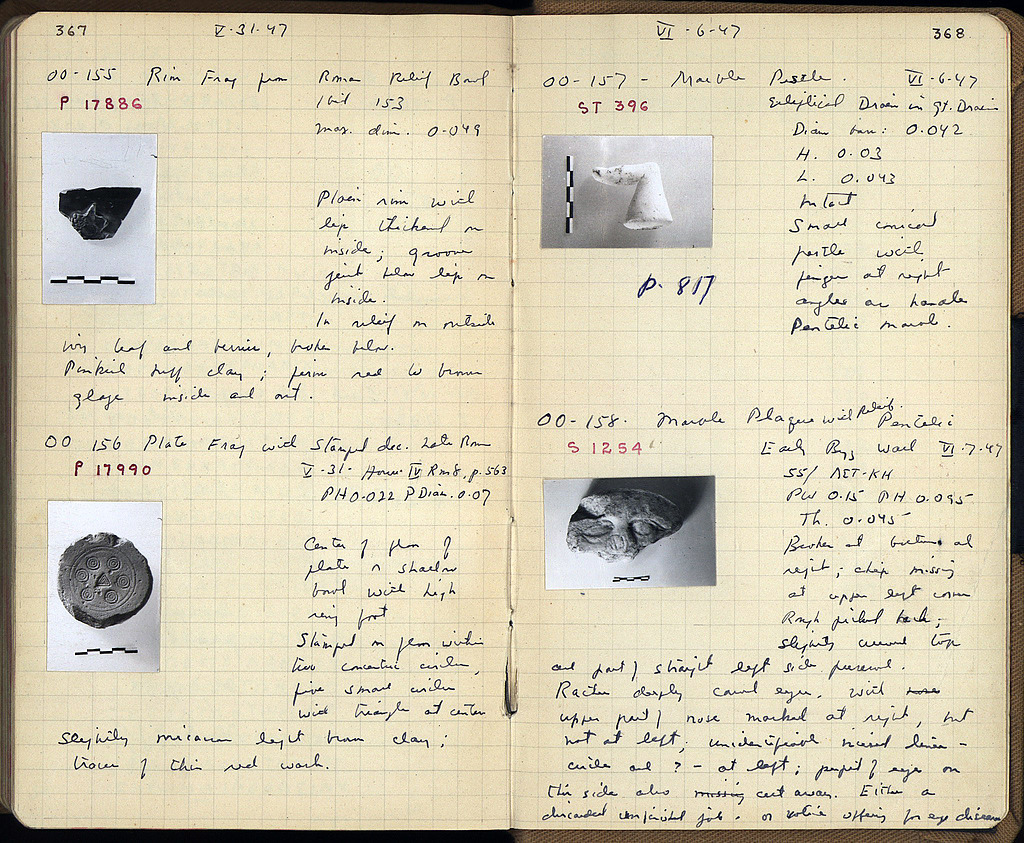 367
V·31·47
OO-155 Rim Frag from Roman Relief Bowl
P 17886
153
max. dim. 0.049
Plain rim with
lip thickened on
inside; groove
just below lip on
inside.
In relief on outside
ivy leaf and berries, broken below.
Pinkish buff clay; firm red to brown
glaze inside and out.
OO 156 Plate Frag with Stamped dec. Late Rom
P 17990
V-31- House IV Rm 8, p.563
PH 0.022 P Diam. 0.07
Center of floor of
plate or shallow
bowl with high
ring foot
Stamped on floor within
two concentric circles,
five small circles
with triangle at center
Slightly micaceous light brown clay;
traces of thin red wash.
VI·6·47
368
OO-157 - Marble Pestle. VI·6·47
ST 396
Elliptical Drain in Gt. Drain
Diam base: 0.042
H. 0.03
L. 0.043
Intact
Small conical
pestle with
finger at right
angles as handle
Pentelic marble.
p. 817
OO-158. Marble Plaque with Relief. Pentelic
S 1254
Early Byz Wall VI·7·47
55/ ΛΕΤ-ΚΗ
PW 0.15 PH 0.095
Th. 0.045
Broken at bottom and
right; chip missing
at upper left corner
Rough picked back;
slightly curved top
and part of straight left side preserved.
Rather deeply carved eyes, with nose
upper part of nose marked at right, but
not at left; unidentifiable incised lines -
circle and ? - at left; pupil of eye on
this side also missing cut away. Either a
discarded job. or votive offering for eye disease